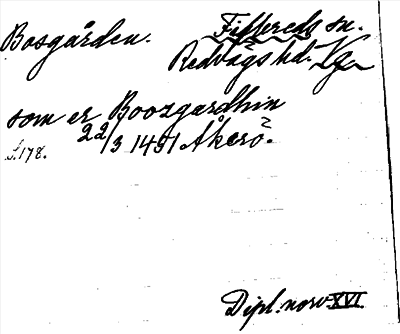 Bosgården. Fiffreds sn.
Redvägs hd. Vg
som er Boozgardhin
22/3 1491 Åkerö.
S. 178.
Dipl. norv XVI.